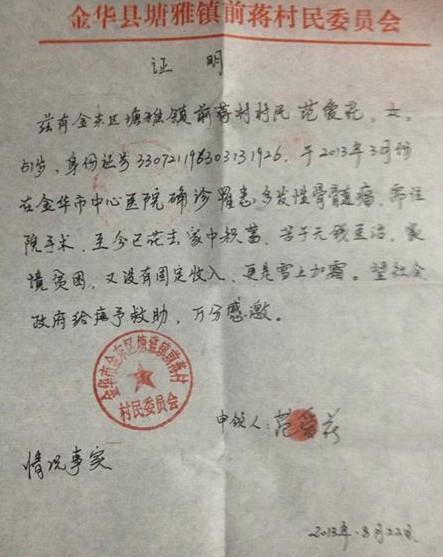 金华县塘雅镇前蒋村民委员会
证明
兹有金东区塘雅镇前蒋村村民范爱花,女,
51岁,身份证号330721196303131926,于2013年3月份
在金华市中心医院确诊罹患多发性骨髓瘤,需住
院手术,至今已花去家中积蓄,苦于无钱医治,家
境贫困,又没有固定收入,更是雪上加霜。望社会
政府给予救助,万分感激。
金华市金东区塘雅镇前蒋村
村民委员会
申领人:范爱花
情况事实
2013年.8月22日